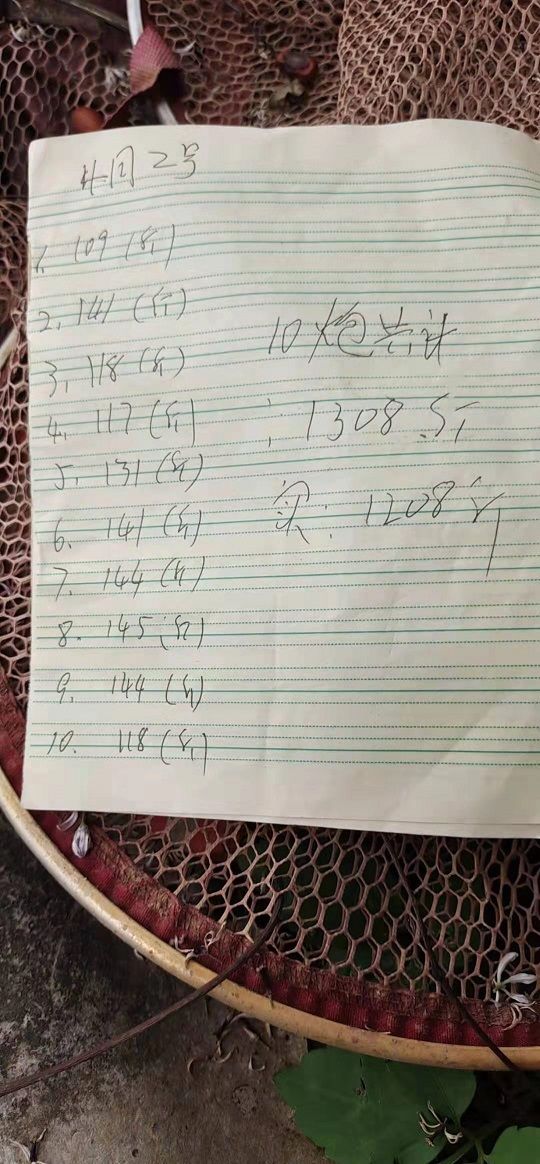 2号
1. 109 (斤)
2. 141 (斤)
3. 118 (斤)
4. 117 (斤)
5. 131 (斤)
6. 141 (斤)
7. 144 (斤)
8. 145 (斤)
9. 144 (斤)
10. 118 (斤)
10 共计
: 1308 斤
实: 1208 斤